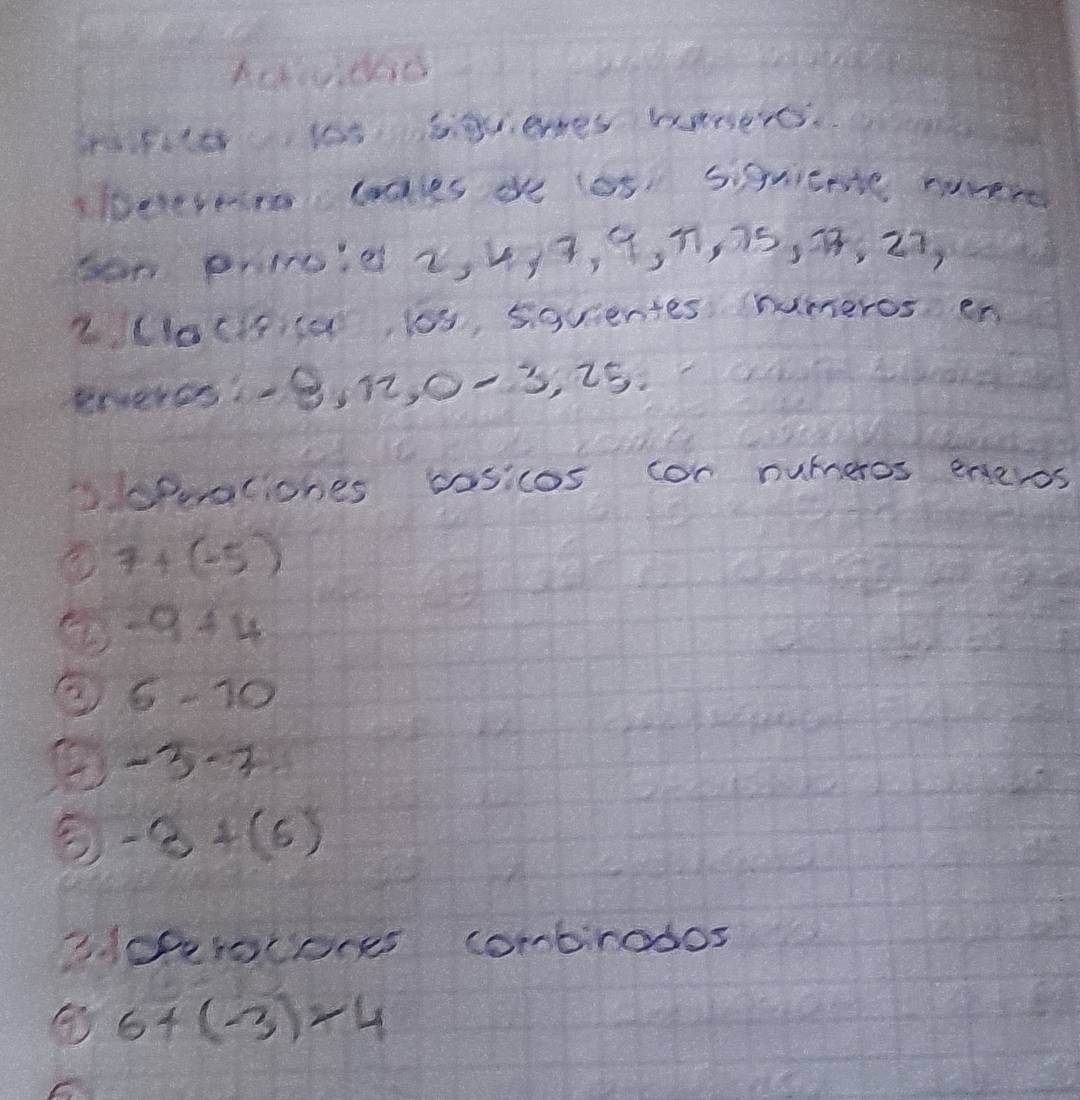 Actividad
los siguientes numero.
1) Determina cuales de los siguiente numero
son primo: a 2, 4, 7, 9, 11, 15, 17, 21,
2. Clacifica los, siguientes numeros en
enteros: -8, 12, 0 - 3, 25.
3. Operaciones basicos con numeros enteros
① 7 + (-5)
② -9 + 4
③ 6 - 10
-3 - 7
⑤ -8 + (6)
3. Operaciones combinados
① 6 + (-3) - 4